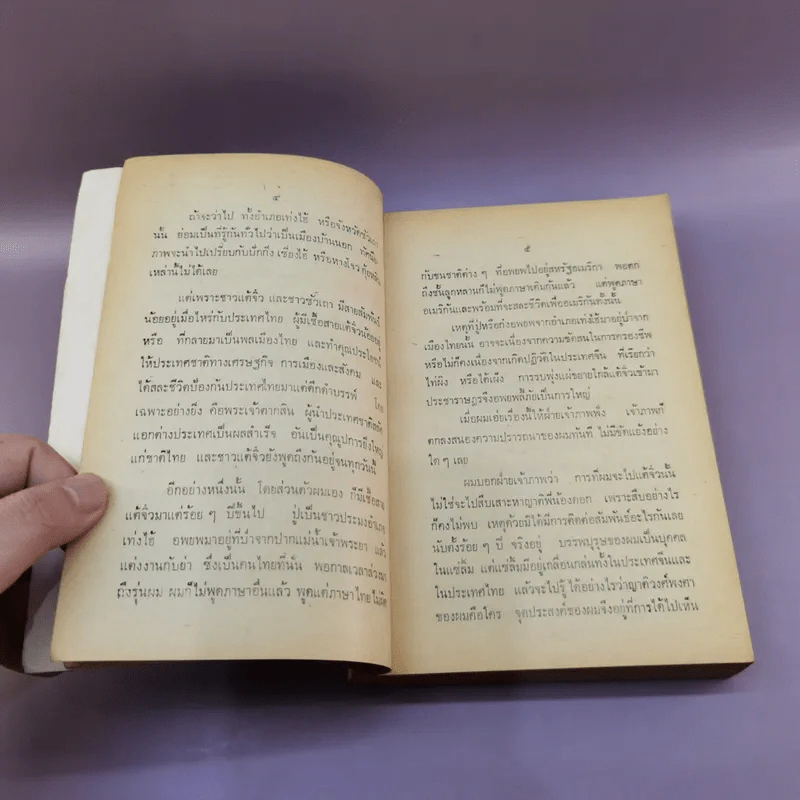 ๔
ถ้าจะว่าไป ทั้งอำเภอเท่งไฮ้ หรือจังหวัดซัวเถา
นั้น ย่อมเป็นที่รู้กันทั่วไปว่าเป็นเมืองบ้านนอก
ภาพจะนำไปเปรียบกับปักกิ่ง เซี่ยงไฮ้ หรือหางโจว
เหล่านี้ไม่ได้เลย
แต่เพราะชาวแต้จิ๋ว และชาวซัวเถา มีสายสัมพันธ์
น้อยอยู่เมื่อไหร่กับประเทศไทย ผู้มีเชื้อสายแต้จิ๋วน้อยอยู่
หรือ ที่กลายมาเป็นพลเมืองไทย และทำคุณประโยชน์
ให้ประเทศชาติทางเศรษฐกิจ การเมืองและสังคม และ
ได้สละชีวิตป้องกันประเทศไทยมาแต่ดึกดำบรรพ์ โดย
เฉพาะอย่างยิ่ง คือพระเจ้าตากสิน ผู้นำประเทศชาติ
แอกต่างประเทศเป็นผลสำเร็จ อันเป็นคุณูปการยิ่งใหญ่
แก่ชาติไทย และชาวแต้จิ๋วยังพูดถึงกันอยู่จนทุกวันนี้
อีกอย่างหนึ่งนั้น โดยส่วนตัวผมเอง ก็มีเชื้อสาย
แต้จิ๋วมาแต่ร้อย ๆ ปีขึ้นไป ปู่เป็นชาวประมงอำเภอ
เท่งไฮ้ อพยพมาอยู่ที่บำจากปากแม่น้ำเจ้าพระยา แล้ว
แต่งงานกับย่า ซึ่งเป็นคนไทยที่นั่น พอกาลเวลาล่วงมา
ถึงรุ่นผม ผมก็ไม่พูดภาษาอื่นแล้ว พูดแต่ภาษาไทย
๕
กับชนชาติต่าง ๆ ที่อพยพไปอยู่สหรัฐอเมริกา พอตก
ถึงชั้นลูกหลานก็ไม่พูดภาษาเดิมกันแล้ว แต่พูดภาษา
อเมริกันและพร้อมที่จะสละชีวิตเพื่ออเมริกันทั้งนั้น
เหตุที่ปู่หรือก๋งอพยพจากอำเภอเท่งไฮ้มาอยู่บำจาก
เมืองไทยนั้น อาจจะเนื่องจากความขัดสนในการครองชีพ
หรือไม่ก็คงเนื่องจากเกิดปฏิวัติในประเทศจีน ที่เรียกว่า
ไท่ผิง หรือไต้เผ็ง การรบพุ่งแผ่ขยายใกล้แต้จิ๋วเข้ามา
ประชาราษฎรจึงอพยพลี้ภัยเป็นการใหญ่
เมื่อผมเอ่ยเรื่องนี้ให้ฝ่ายเจ้าภาพฟัง เจ้าภาพก็
ตกลงสนองความปรารถนาของผมทันที ไม่มีขัดแย้งอย่าง
ใด ๆ เลย
ผมบอกฝ่ายเจ้าภาพว่า การที่ผมจะไปแต้จิ๋วนั้น
ไม่ใช่จะไปสืบเสาะหาญาติพี่น้องดอก เพราะสืบอย่างไร
ก็คงไม่พบ เหตุด้วยมิได้มีการติดต่อสัมพันธ์อะไรกันเลย
นับตั้งร้อย ๆ ปี จริงอยู่ บรรพบุรุษของผมเป็นบุคคล
ในแซ่ลิ้ม แต่แซ่ลิ้มมีอยู่เกลื่อนกล่นทั้งในประเทศจีนและ
ในประเทศไทย แล้วจะไปรู้ได้อย่างไรว่าญาติวงศ์พงศา
ของผมคือใคร จุดประสงค์ของผมจึงอยู่ที่การได้ไปเห็น